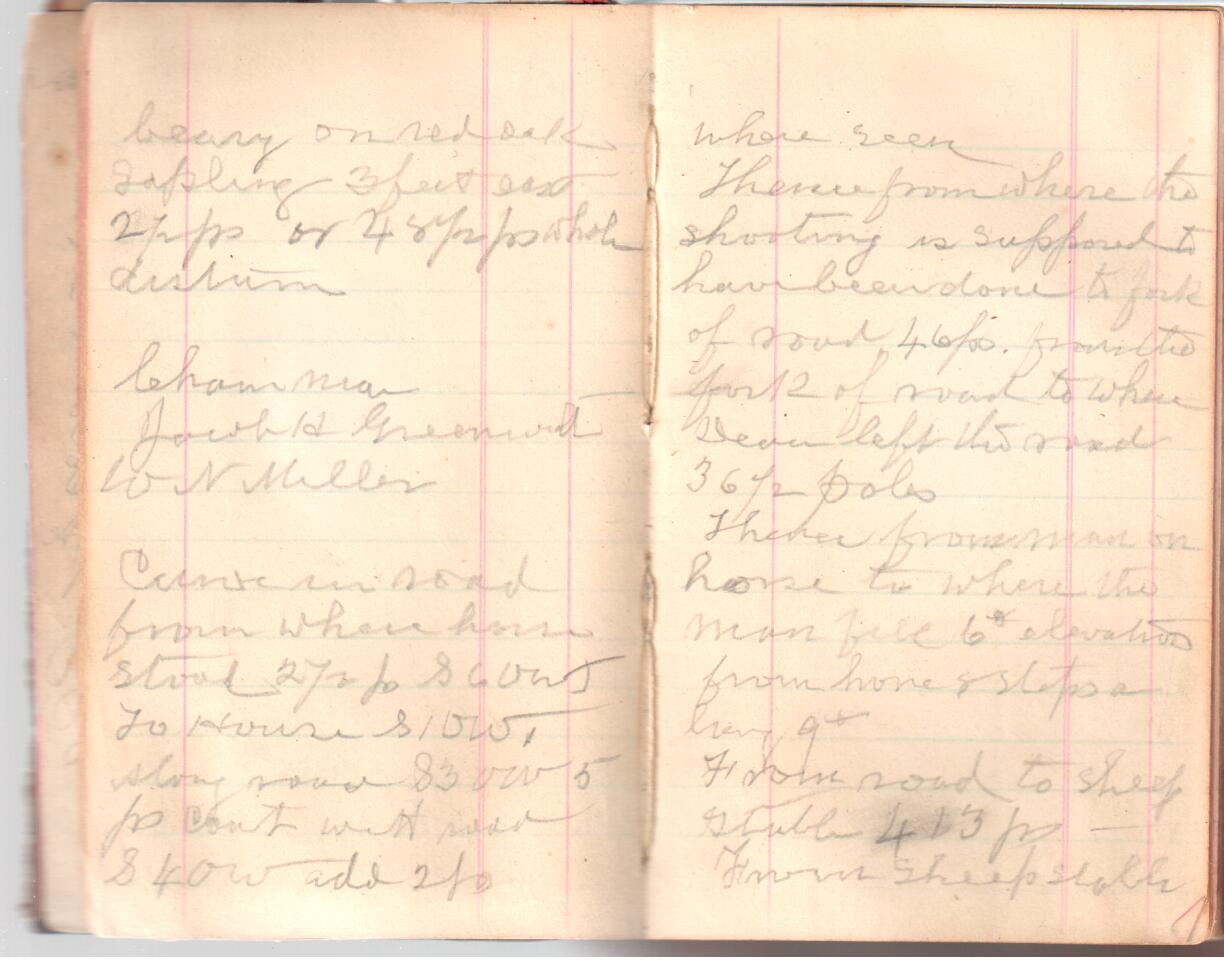 on red oak
Sapling 3 feet east
2 1/2 ps or 48 1/2 ps whole
Chain man
Jacob H Greenwalt
W N Miller
Curve in road
from where horse
stood 2 1/2 p S 60 W
To House S 10 W
along road S 30 W 5
ps cont with road
S 40 W add 2 ps
where seen
Thence from where the
shooting is supposed to
have been done to fork
of road 46 ps. from the
fork of road to where
left the road
36 1/2 poles
Thence from man on
horse to where the
man fell 6 elevation
from horse & steps
9
From road to sheep
stable 413 ps —
From sheep stable